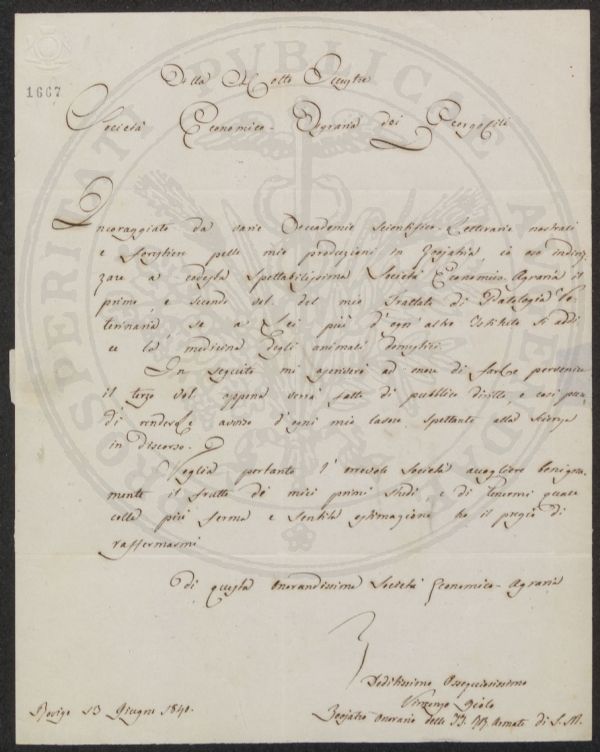 1667
Della Molto Illustre
Società Economico-Agraria dei Georgofili
Incoraggiato da varie Accademie Scientifico-Letterarie nostrali
e forestiere pelle mie produzioni in Zoojatria, io oso indiriz-
zare a codesta Spettabilissima Società Economico-Agraria il
primo, e secondo vol. del mio Trattato di Patologia Ve-
terinaria, se a Lei più d'ogn'altro Istituto si addi-
ce la medicina degli animali domestici.
In seguito mi ascriverò ad onore di farLe pervenire
il terzo vol. appena verrà fatto di pubblico diritto, e così pure
di renderLe avviso d'ogni mio lavoro spettante alla Scienza
in discorso.
Voglia pertanto l'orrevole Società accogliere benigna-
mente il frutto de' miei primi studi e di tenermi quale
colla più ferma e sentita estimazione ho il pregio di
raffermarmi
di questa Onorandissima Società Economico-Agraria
Deditissimo Ossequiosissimo
Vincenzo
Zoojatro Onorario delle II. RR. Armate di S. M.
Rovigo 13 Giugno 1840.
PROSPERITATI PVBLICAE AVGENDAE